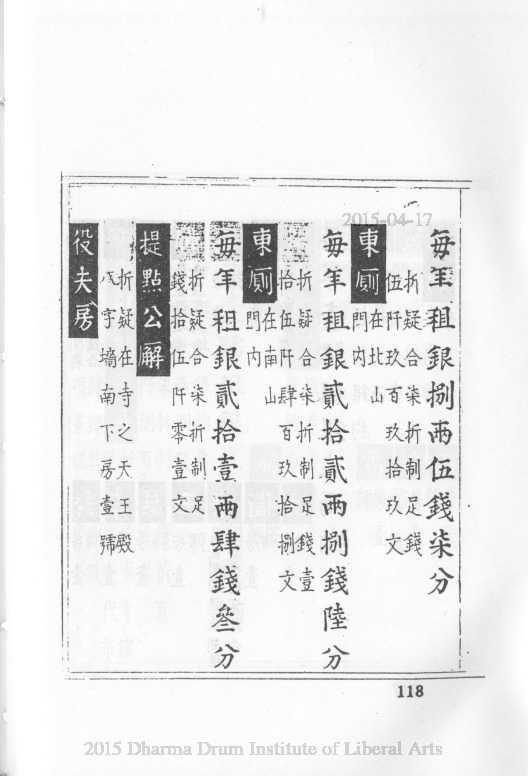 2015-04-17
每年租銀捌兩伍錢柒分
折疑合柒折制足錢
伍阡玖百玖拾玖文
東厠
在北山
門内
每年租銀貳拾貳兩捌錢陸分
折疑合柒折制足錢壹
拾伍阡肆百玖拾捌文
東厠
在南山
門内
每年租銀貳拾壹兩肆錢叁分
折疑合柒折制足
錢拾伍阡零壹文
提點公廨
折疑在寺之天王殿
八字墻南下房壹號
役夫房
118
2015 Dharma Drum Institute of Liberal Arts